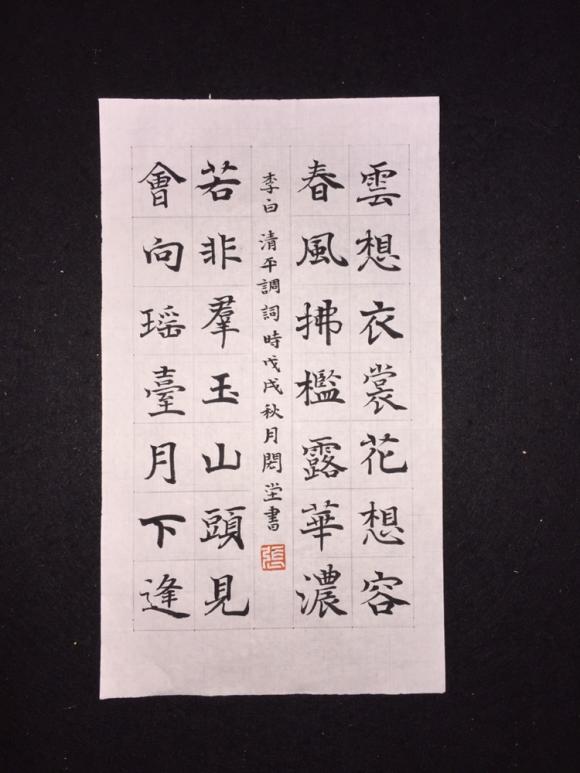 雲想衣裳花想容
春風拂檻露華濃
李白 清平調詞 時戊戌秋月 坣書
張
若非羣玉山頭見
會向瑶臺月下逢